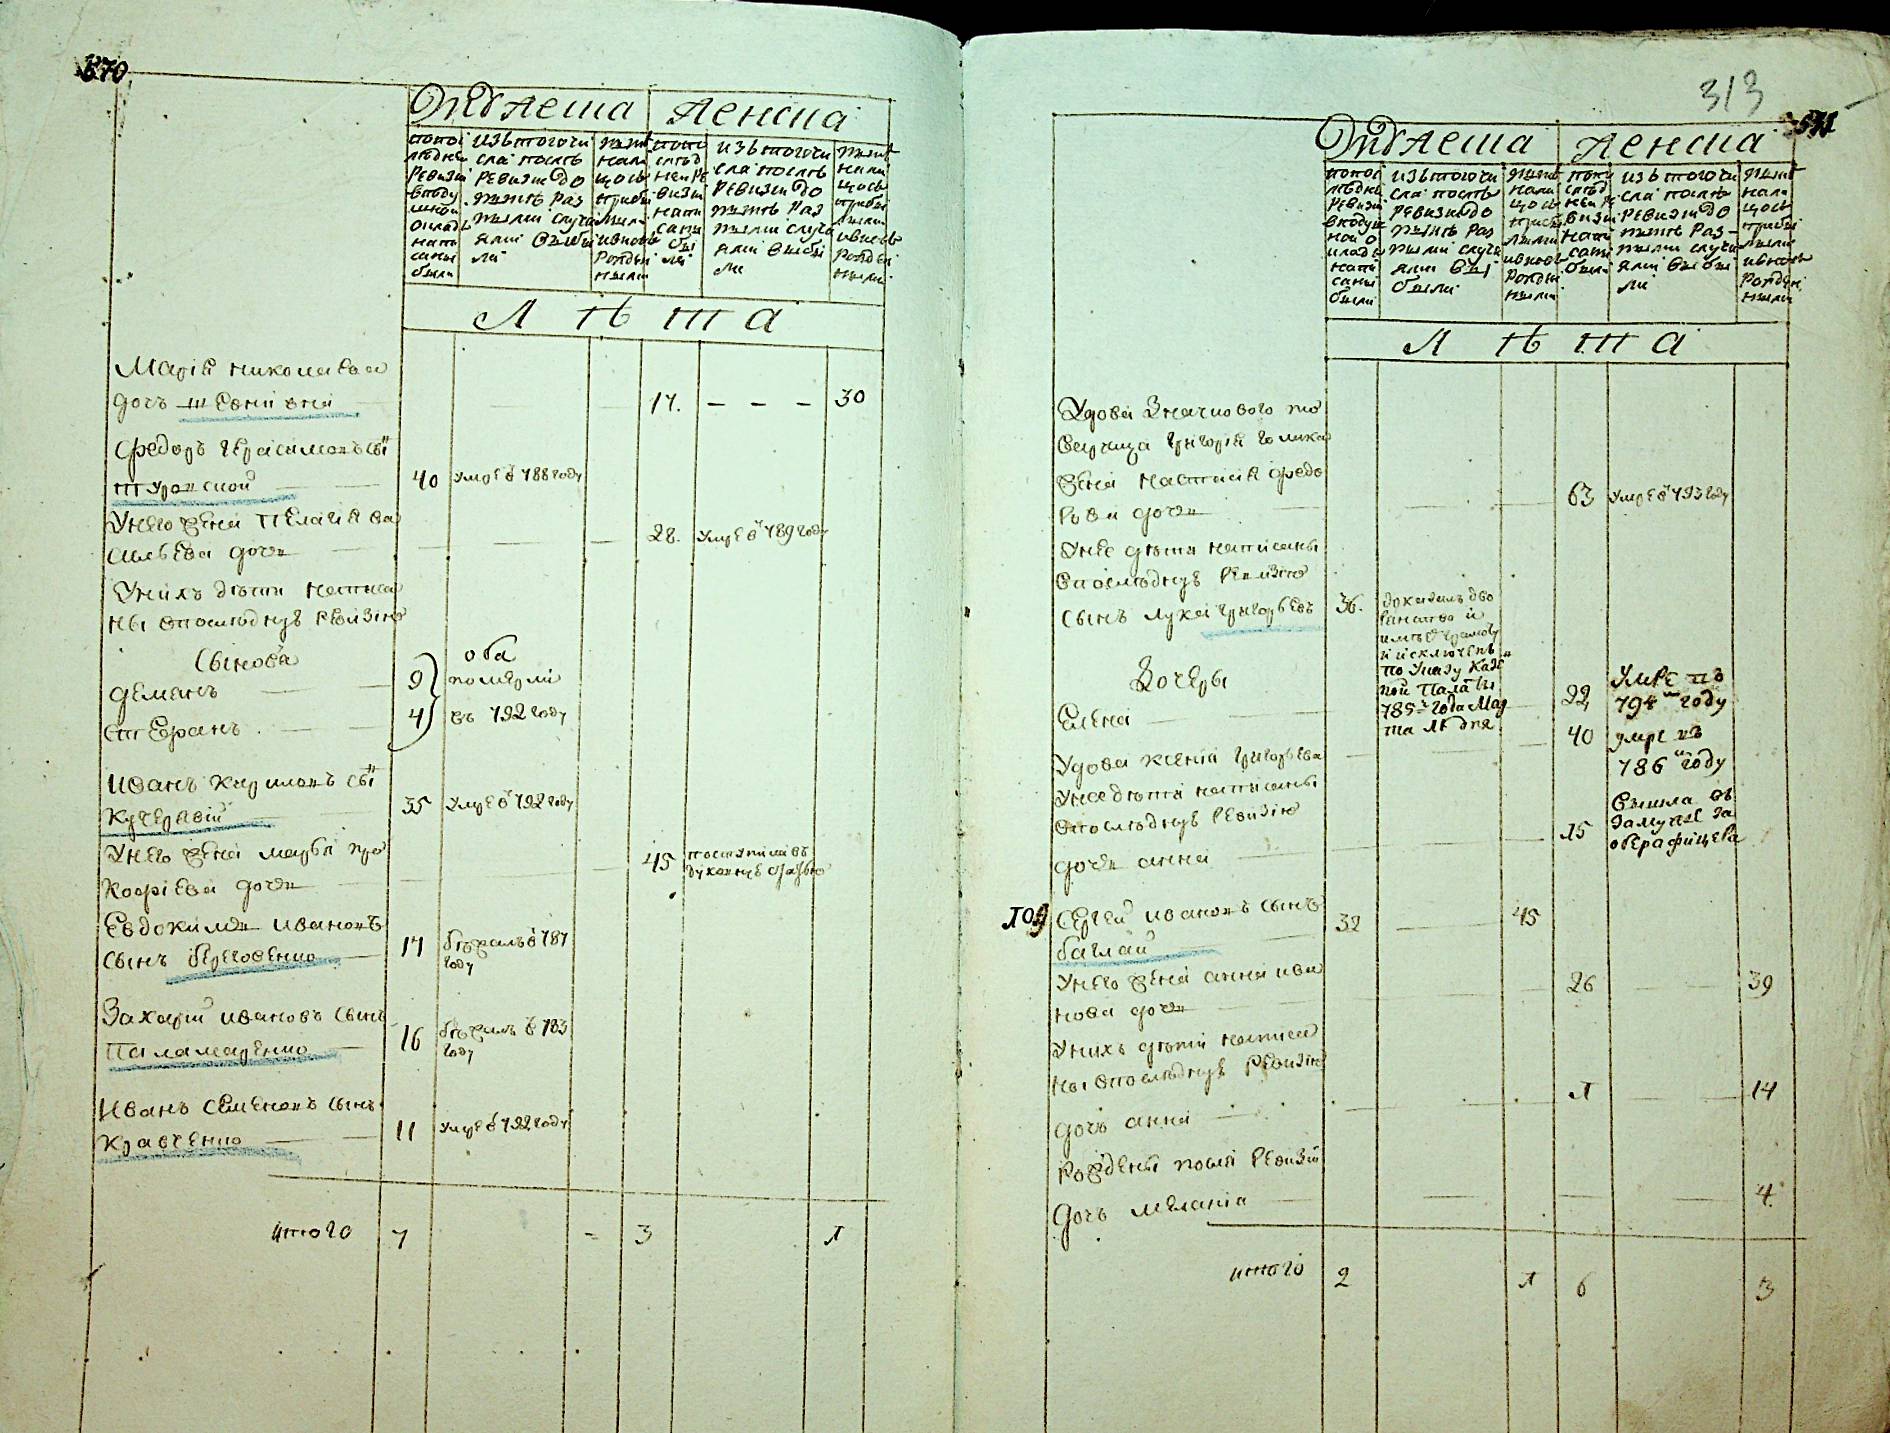 570
Мужеска Женска
попос
ледней
ревизии
в поду
шной
оклад
напи
саны
были
изъ того чи
сла после
ревизии до
ныне раз
ными случа
ями выбы
ли
ныне
нали
цо съ
прибы
лыми
и вновь
рожден
ными
попо
след
ней ре
визии
напи
саны
бы
ли
изъ того чи
сла после
ревизии до
ныне раз
ными случа
ями выбы
ли
ныне
нали
цо съ
прибы
лыми
и вновь
рожден
ными
Л ѣ т а
Марія Николаева
дочь 17. – – – 30
Федоръ Герасимовъ сынъ
Туранской 40 умре в 788 году
У него жена Пелагія Ва
сильева дочь 28. умре в 789 году
У нихъ дѣти написа
ны в последнуѣ ревизію
Сыновя оба
Деманъ 9 померли
Стефанъ 4 въ 792 году
Иванъ Кириловъ сынъ
Кучерявій 35 умре в 792 году
У него жена Марья Про
кофіева дочь 45
Евдокимъ Ивановъ
сынъ 17 бежалъ в 787
году
Захарій Ивановъ сынъ
Паламаренко 16 бежалъ в 783
году
Иванъ Семеновъ сынъ
Кравченко 11 умре в 792 году
итого 7 – 3 1
313
571
Мужеска Женска
попос
ледней
ревизии
в подуш
ной о
кладе
напи
саны
были
изъ того чи
сла после
ревизии до
ныне раз
ными случа
ями вы
были
ныне
нали
цо съ
прибы
лыми
и вновь
рожден
ными
попо
след
ней ре
визии
напи
саны
были
изъ того чи
сла после
ревизии до
ныне раз
ными случа
ями выбы
ли
ныне
нали
цо съ
прибы
лыми
и вновь
рожден
ными
Л ѣ т а
Удова Значкового то
варища Григорія Голика
жена Настасія Федо
рова дочь 63 умре в 793 году
У нее дѣти написаны
в последнуѣ ревизію
Сынъ Лука Григорьевъ 36. доказалъ дво
рянство и
имѣе грамоту
и исключенъ
по указу Казен
ной Палаты
785 года Мар
та 18 дня
Дочеры
Елена 22 умре въ
794 году
Удова Ксенія Григорьева 40 умре въ
786 году
У нее дѣти написаны
в последнуѣ ревизію
дочь Анна 15 вышла въ
замуже за
обера фицера
109 Сергей Ивановъ сынъ
Баглай 32 45
У него жена Анна Ива
нова дочь 26 39
У нихъ дѣти написа
ны в последнуѣ ревизію
дочь Анна 1 14
Рождены после ревизіи
дочь Меланія 4.
итого 2 1 6 3